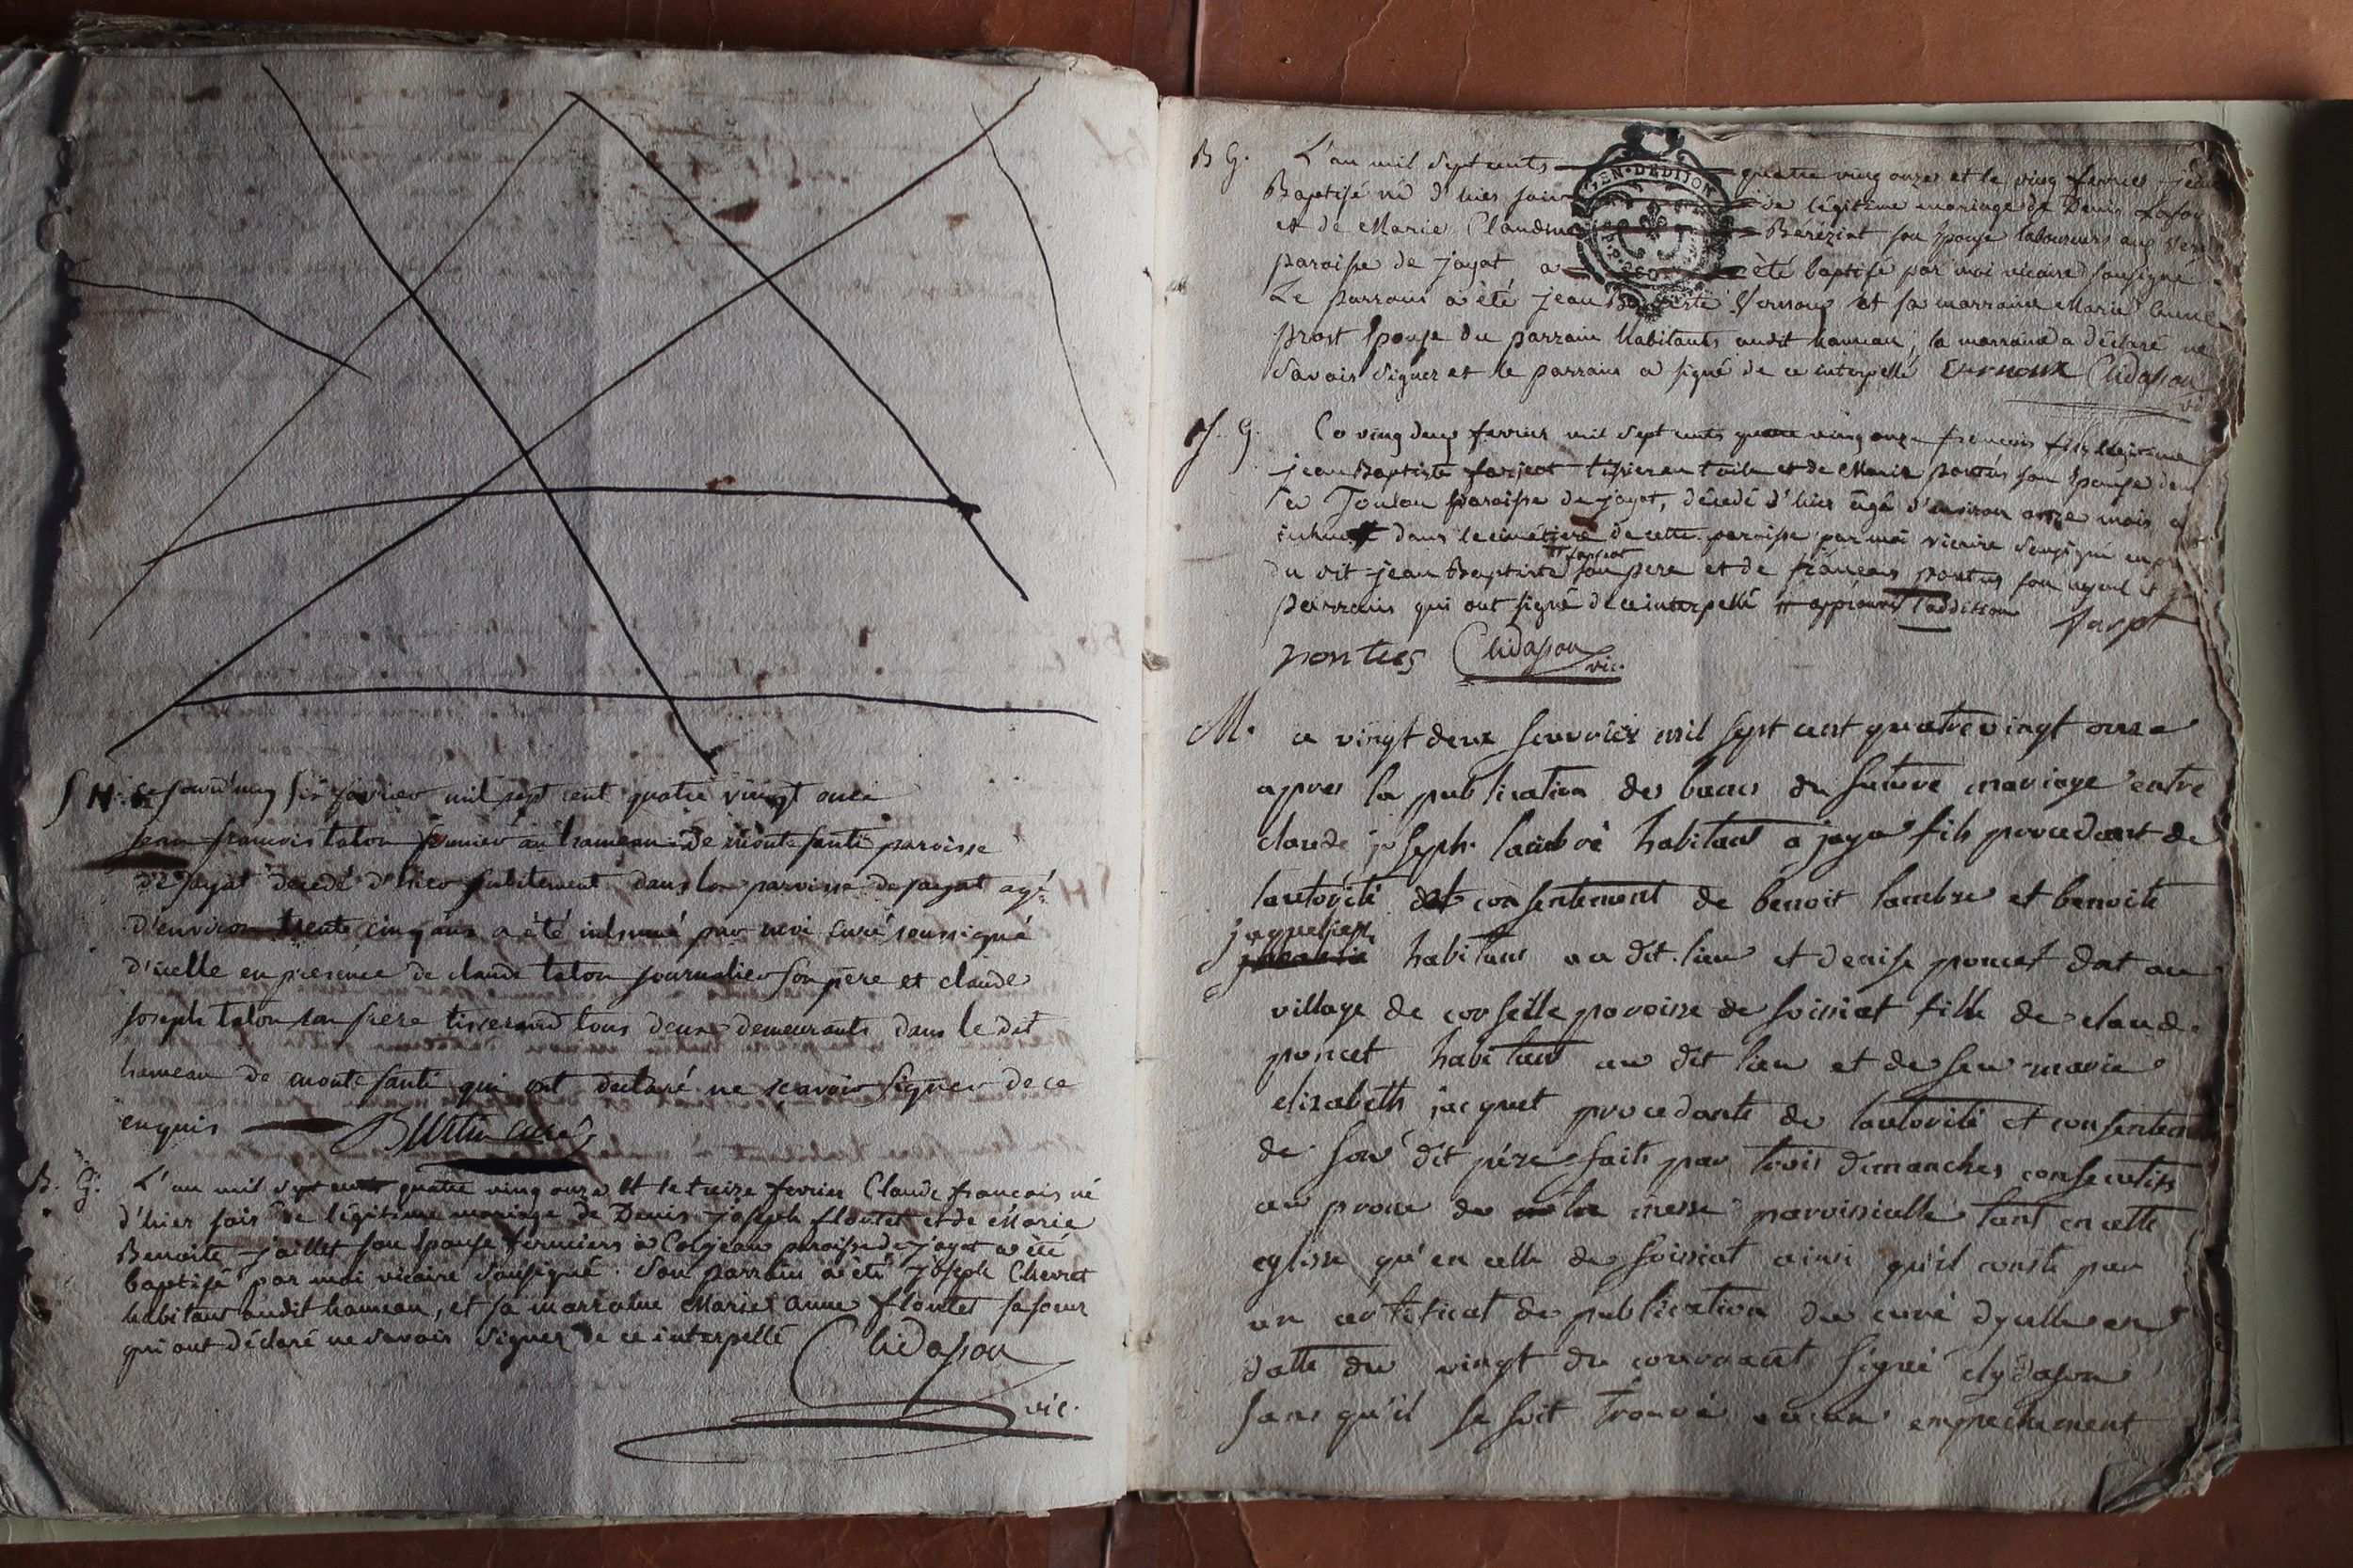 S H. Ce jourd'huy six janvier mil sept cent quatre vingt onze
jean francois talon fermier au hameau de monte fanti paroisse
de jayat decedé d'hier subitement dans la paroisse de jayat agé
d'environ trente cinq ans a été inhumé par moi curé soussigné
d'icelle en presence de claude talon journalier son pere et claude
joseph talon son frere tisserand tous deux demeurants dans le dit
hameau de monte fanti qui ont declaré ne scavoir signer de ce
enquis curé
B. G. L'an mil sept cents quatre ving onze et le treize fevrier Claude françois né
d'hier soir de légitime mariage de Denis joseph floutet et de Marie
Benoite jaillet son épouse fermiers à paroisse de jayat a été
baptisé par moi vicaire sousigné. Son parrain a été joseph Chevret
habitant audit hameau, et sa marraine Marie anne floutet sa soeur
qui ont déclaré ne savoir signer de ce interpellé Chidason
vic.
B G. L'an mil sept cents quatre ving onze et le ving fevrier jean
EN · DE DIJON
Baptisé né d'hier soir de légitime mariage de Denis
et de Marie Claudine Béréziat son épouse laboureurs aux
paroisse de jayat, a été baptisé par moi vicaire sousigné
Le parrain a été jean Baptiste Vernoux et sa marraine Marie Anne
prost épouse du parrain habitants audit hameau; la marraine a déclaré ne
savoir signer et le parrain a signé de ce interpellé Vernoux Chidason
vic
S. G. Ce ving deux fevrier mil sept cents quatre ving onze francois fils légitime
jean Baptiste farjeot tissier en toile et de Marie pontus son épouse
a Toulou paroisse de jayat, décédé d'hier âgé d'environ onze mois a
inhumé dans le cimétiere de cette paroisse par moi vicaire sousigné en
farjeot
du dit jean Baptiste son pere et de françois pontus son ayeul et
parrains qui ont signé de ce interpellé approuvé l'addition
pontus Chidason vic.
M. ce vingt deux fevrier mil sept cent quatre vingt onze
apres la publication des bancs du future mariage entre
claude joseph lambré habitant a jaya fils procedant de
lautorité et consentement de benoit lambre et benoite
habitans au dit lieu et denise poncet dat au
village de corseille paroisse de foissiat fille de claude
poncet habitant au dit lieu et de feu marie
elisabeth jacquet procedante de lautorité et consentement
de son dit père faits par trois dimanches consecutifs
au prone de la messe paroissialle tant en cette
eglisse qu'en celle de foissiat ainsi qu'il conste par
un certificat de publication du curé dycelle en
datte du vingt du courant signé clydason
sans qu'il se soit trouvé aucun empechement